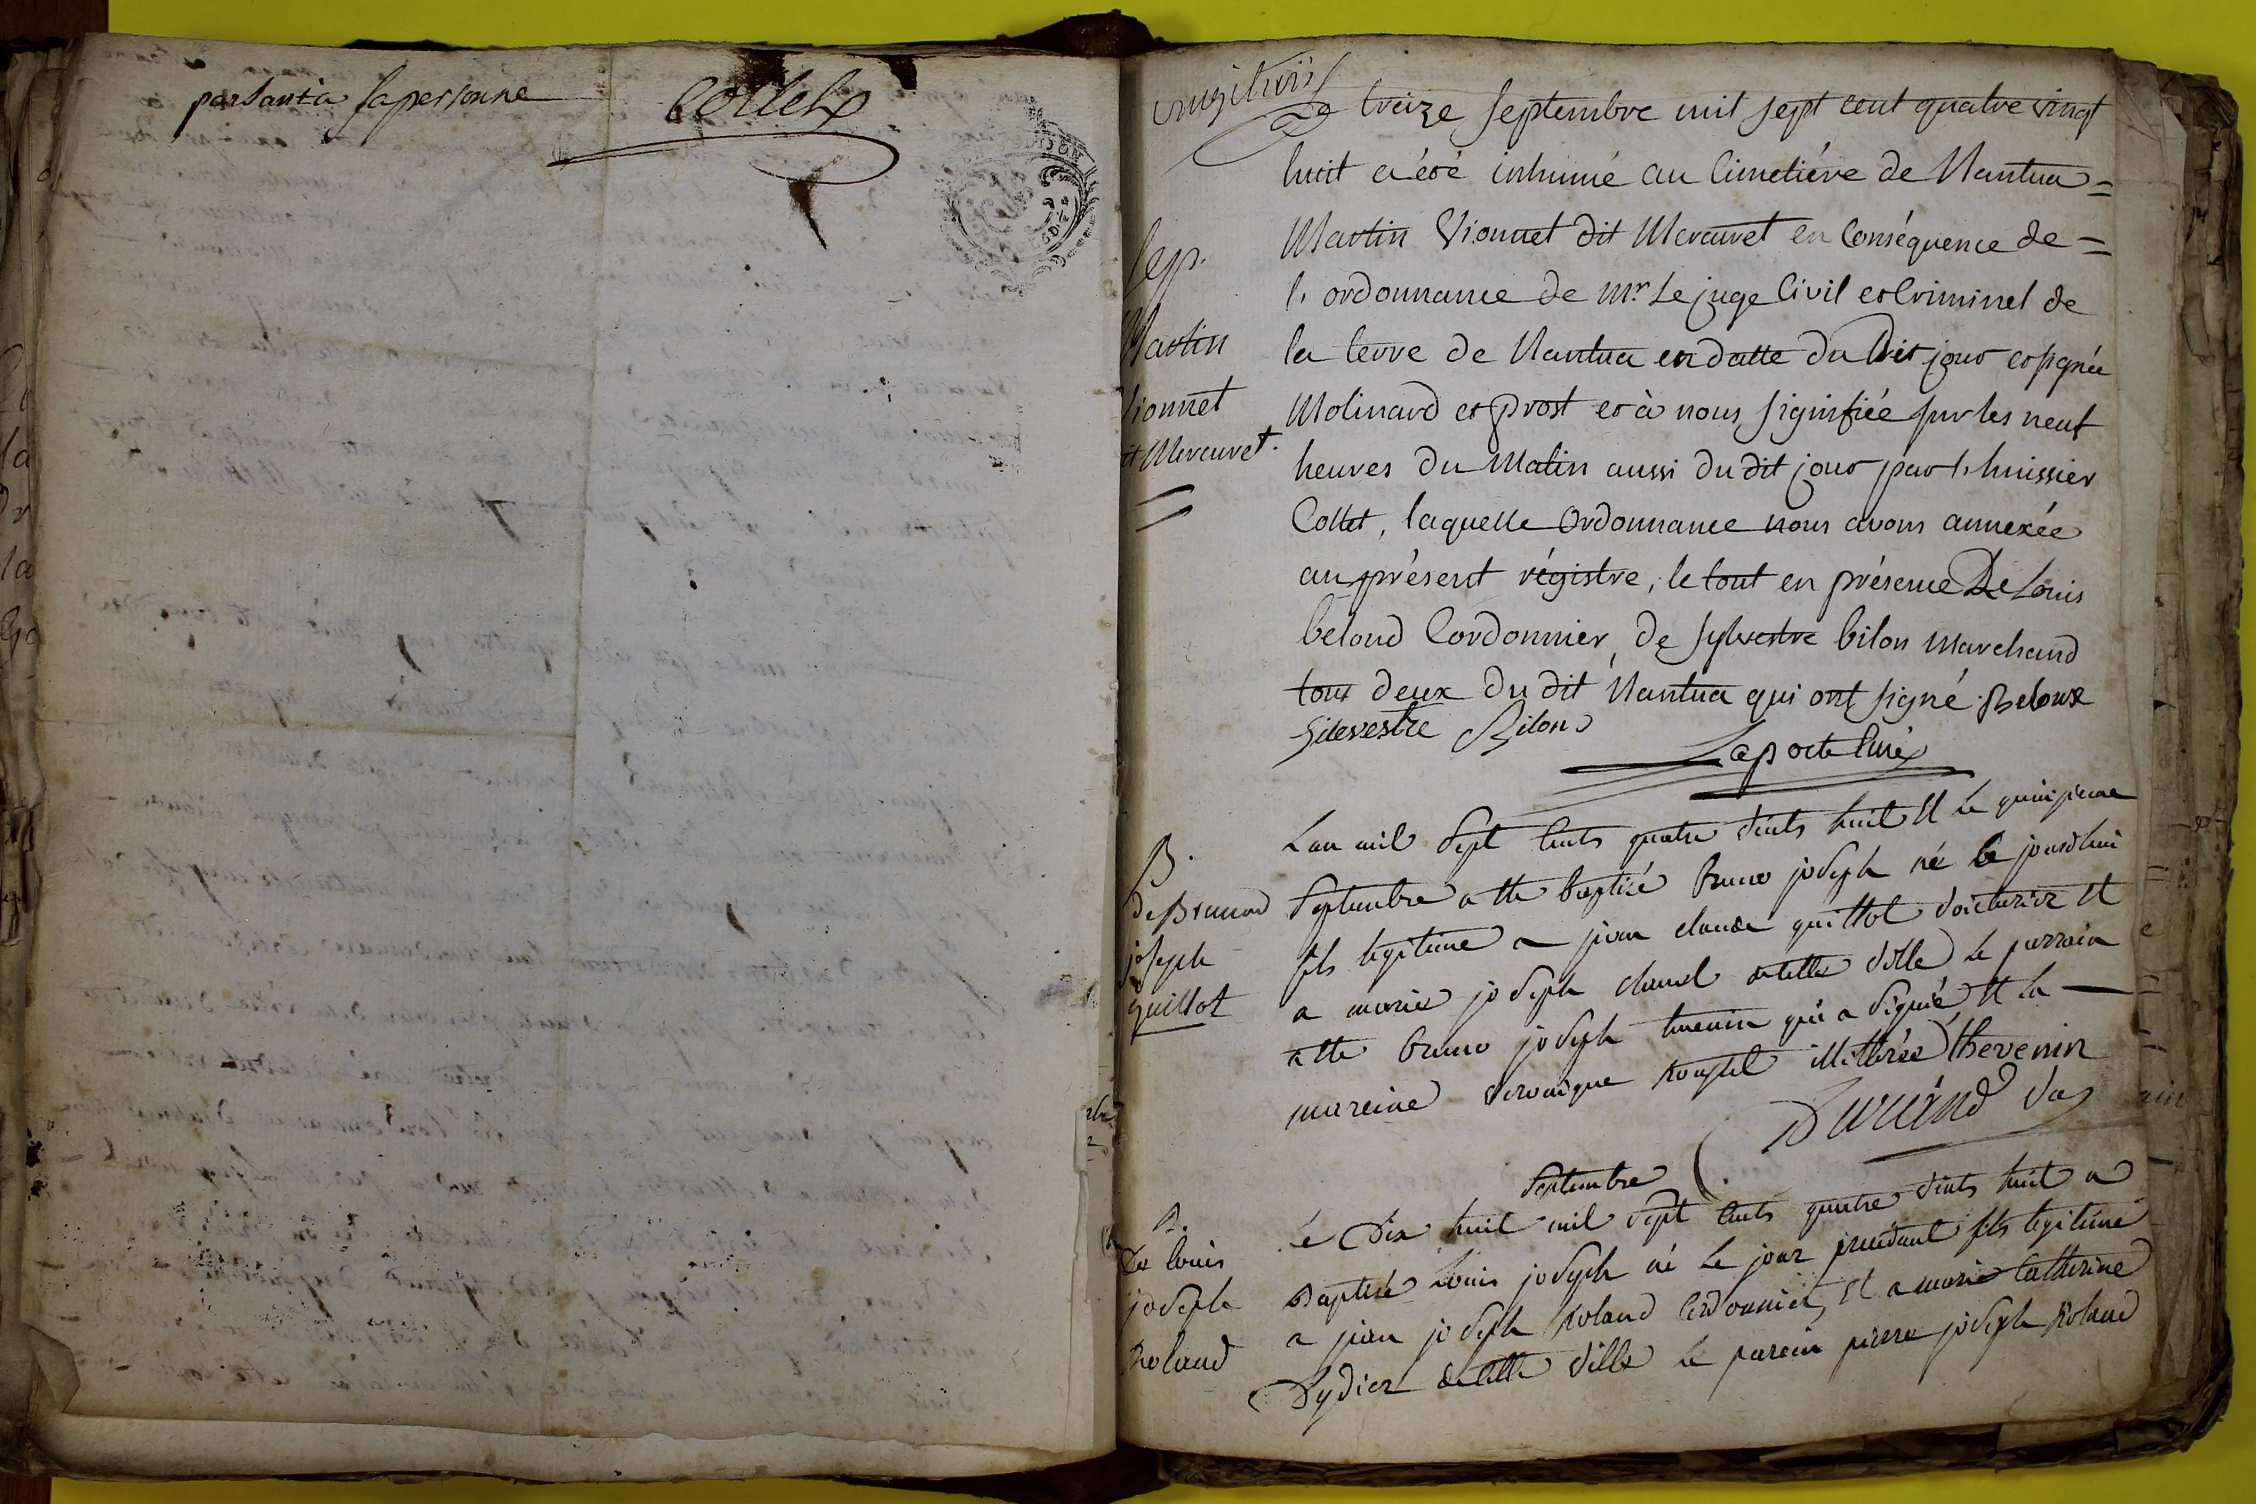 parlant a sa personne Collet
vingt huit
Le treize septembre mil sept cent quatre vingt
huit a été inhumé au Cimetiére de Nantua =
Martin Vionnet dit Mercuret en Conséquence de =
l'ordonnance de mr Le juge Civil et Criminel de
la terre de Nantua en datte du Dit jour et signée
Molinard et prost et à nous signifiée sur les neuf
heures du Matin aussi du dit jour par l'huissier
Collet, laquelle Ordonnance nous avons annexée
au présent régistre, le tout en présence De Louis
beloud Cordonnier, de sylvestre bilon Marchand
tous deux du dit Nantua qui ont signé. Beloux
Silevestre Bilon
Laporte Curé
Sep.
Martin
Vionnet
dit Mercuret.
L'an mil sept Cents quatre vints huit Et le quinzieme
septembre a ette baptisé Bruno joseph né le jourdhui
fils legitime a jean claude guillot voiturier Et
a marie joseph chanel de cette ville le parrain
a ette bruno joseph tevenin qui a signé, Et la
mareine veronique illitterée thevenin
Durand va
B.
De Brunod
joseph
guillot
septembre
Le Dix huit mil sept Cents quatre vints huit a
Baptisé Louis joseph né le jour precedant fils legitime
a jean joseph Roland Cordonnier, Et a marie Catherine
Dydier de cette ville le parein pierre joseph Roland
B.
De louis
joseph
Roland